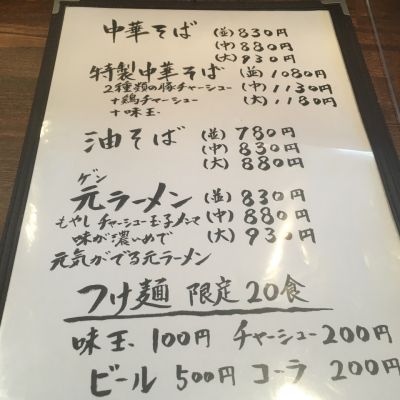 中華そば (並) 830円
(中) 880円
(大) 930円
特製中華そば (並) 1080円
2種類の豚チャーシュー (中) 1130円
+鶏チャーシュー (大) 1180円
+味玉
油そば (並) 780円
(中) 830円
(大) 880円
ゲン
元ラーメン (並) 830円
もやし チャーシュー 玉子 メンマ (中) 880円
味が濃いめで (大) 930円
元気がでる元ラーメン
つけ麺 限定20食
味玉 100円 チャーシュー 200円
ビール 500円 コーラ 200円